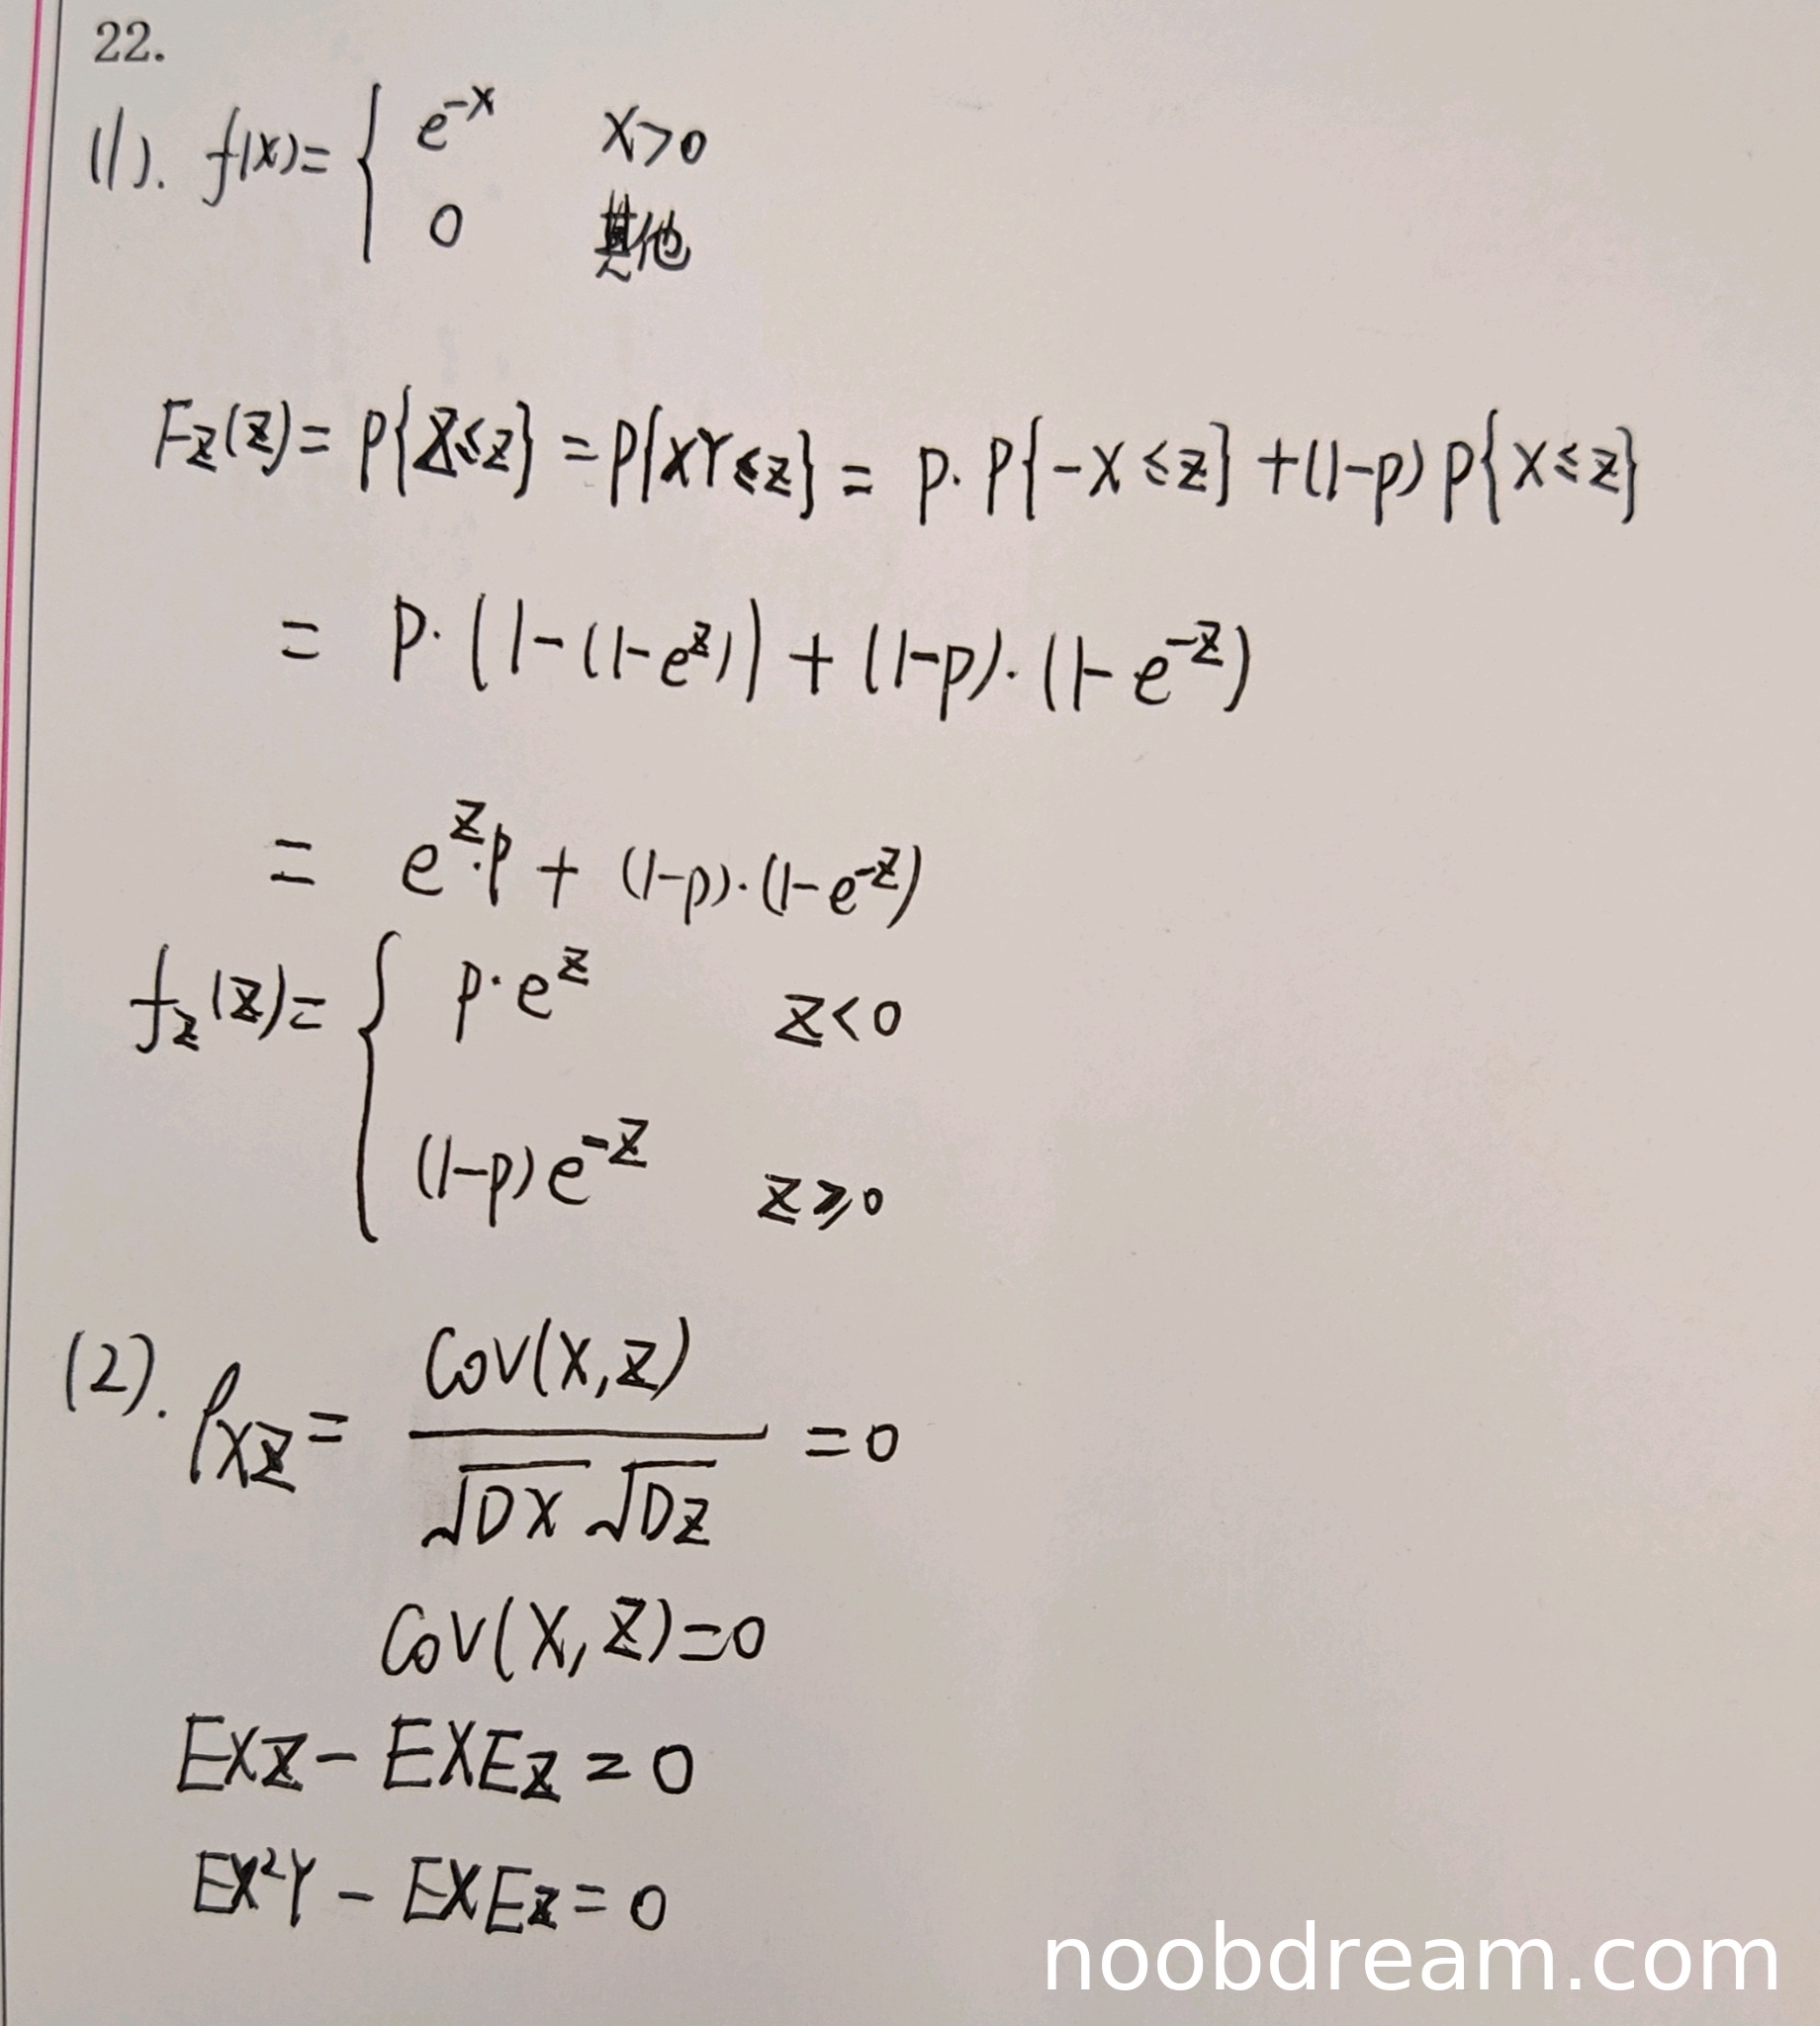 22.
(1). f(x)= { e^{-x} x>0
0 其他
F_Z(z)= P{Z≤z} = P{XY≤z} = p·P{-X≤z} + (1-p) P{X≤z}
= p·(1-(1-e^z)) + (1-p)·(1-e^{-z})
= e^z·p + (1-p)·(1-e^{-z})
f_Z(z)= { p·e^z z<0
(1-p)e^{-z} z≥0
(2). ρ_{XZ} = Cov(X,Z) / √DX √DZ = 0
Cov(X,Z)=0
EXZ - EXEZ = 0
EX²Y - EXEZ = 0
noobdream.com